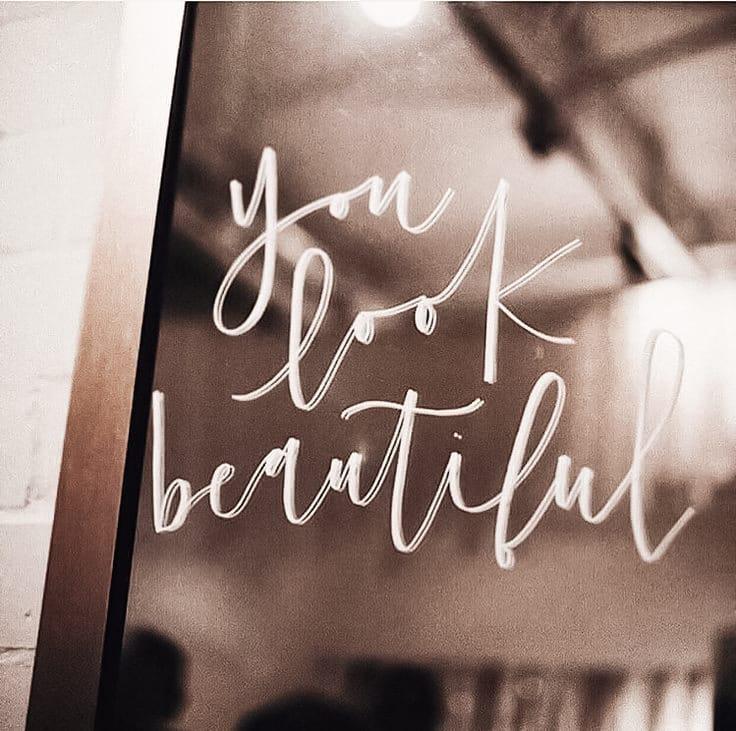 you
look
beautiful